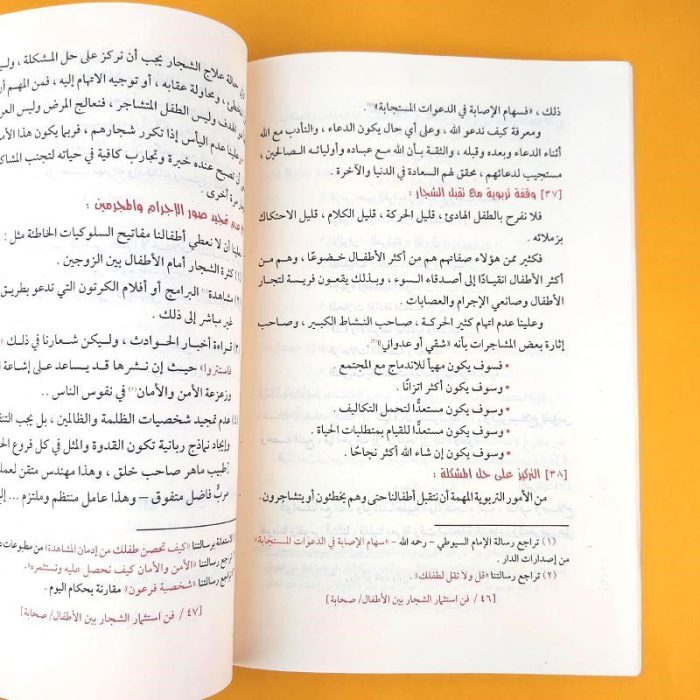 ذلك ، «فسهام الإصابة في الدعوات المستجابة»(١).
ومعرفة كيف ندعو الله ، وعلى أي حال يكون الدعاء ، والتأدب مع الله
أثناء الدعاء وبعده وقبله ، والثقة بأن الله مع عباده وأوليائه الصالحين ،
مستجيب لدعائهم ، محقق لهم السعادة في الدنيا والآخرة .
[٣٧] وقفة تربوية مع تقبل الشجار :
فلا نفرح بالطفل الهادئ ، قليل الحركة ، قليل الكلام ، قليل الاحتكاك
بزملائه .
فكثير ممن هؤلاء صفاتهم هم من أكثر الأطفال خضوعًا ، وهم من
أكثر الأطفال انقيادًا إلى أصدقاء السوء ، وبذلك يقعون فريسة لتجار
الأطفال وصانعي الإجرام والعصابات .
وعلينا عدم اتهام كثير الحركة ، صاحب النشاط الكبير ، وصاحب
إثارة بعض المشاجرات بأنه «شقي أو عدواني»(٢).
• فسوف يكون مهيأ للاندماج مع المجتمع .
• وسوف يكون أكثر اتزانًا .
• وسوف يكون مستعدًّا لتحمل التكاليف .
• وسوف يكون مستعدًّا للقيام بمتطلبات الحياة .
• وسوف يكون إن شاء الله أكثر نجاحًا .
[٣٨] التركيز على حل المشكلة :
من الأمور التربوية المهمة أن نتقبل أطفالنا حتى وهم يخطئون أو يتشاجرون.
(١) تراجع رسالة الإمام السيوطي - رحمه الله - «سهام الإصابة في الدعوات المستجابة»
من إصدارات الدار .
(٢) تراجع رسالتنا «قل ولا تقل لطفلك» .
[٤٦ / فن استثمار الشجار بين الأطفال/ صحابة]
حالة علاج الشجار يجب أن نركز على حل المشكلة ،
ومحاولة عقابه ، أو توجيه الاتهام إليه ، فمن المهم
الهدف وليس الطفل المتشاجر ، فنعالج المرض وليس
وعلينا عدم اليأس إذا تكرر شجارهم ، فربما يكون هذا
تصبح عنده خبرة وتجارب كافية في حياته لتجنب
مرة أخرى .
عدم تمجيد صور الإجرام والمجرمين :
علينا أن لا نعطي أطفالنا مفاتيح السلوكيات الخاطئة مثل :
(١) كثرة الشجار أمام الأطفال بين الزوجين .
مشاهدة(١) البرامج أو أفلام الكرتون التي تدعو بطريق
غير مباشر إلى ذلك .
قراءة أخبار الحوادث ، وليكن شعارنا في ذلك
حيث إن نشرها قد يساعد على إشاعة
وزعزعة الأمن والأمان(٢) في نفوس الناس ..
عدم تمجيد شخصيات الظلمة والظالمين ، بل يجب
وإيجاد نماذج ربانية تكون القدوة والمثل في كل فروع
[طبيب ماهر صاحب خلق ، وهذا مهندس متقن
مربٍّ فاضل متفوق – وهذا عامل منتظم وملتزم ...
الاستعانة برسالتنا «كيف تحصن طفلك من إدمان المشاهدة» من مطبوعات
تراجع رسالتنا «الأمن والأمان كيف نحصل عليه ونستثمره» .
تراجع رسالتنا «شخصية فرعون» مقارنة بحكام اليوم .
[٤٧ / فن استثمار الشجار بين الأطفال/ صحابة]